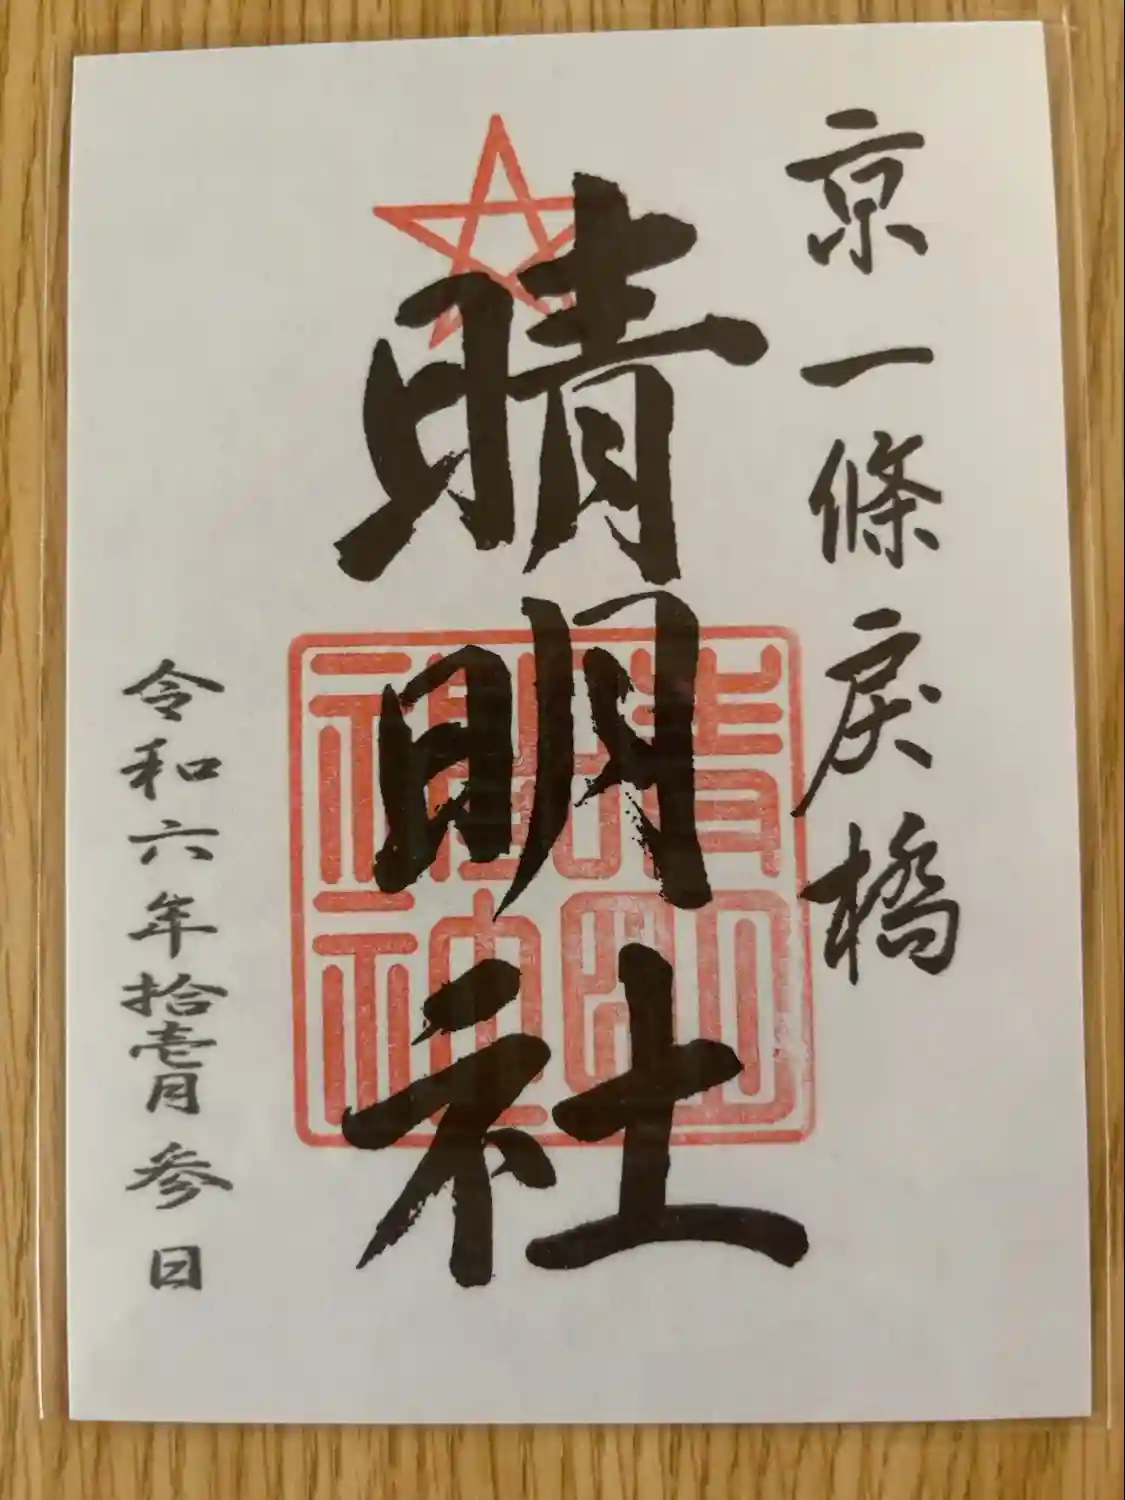 京一條戻橋
晴明社
令和六年拾壱月参日